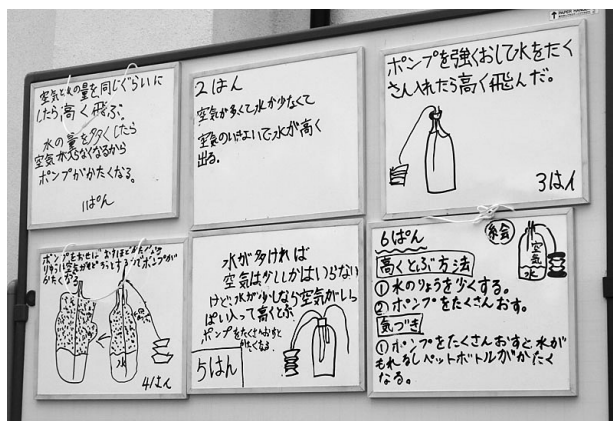 空気と水の量を同じぐらいに
したら高く飛ぶ。
水の量を多くしたら
空気が入らなくなるから
ポンプがかたくなる。
1ぱん
2はん
空気が多くて水が少なくて
空気のいきよいで水が高く
出る。
ポンプを強くおして水をたく
さん入れたら高く飛んだ。
3はん
ポンプをおせばおすほど
かたくなる
水
4はん
水が多ければ
空気は少ししかはいらない
けど、水が少しなら空気がいっ
ぱい入って高くとぶ
ポンプをたくさんおすと
かたくなる
5はん
6ぱん
高くとぶ方法
①水のりょうを少くする。
②ポンプをたくさんおす。
気づき
①ポンプをたくさんおすと水が
もれるしペットボトルがかたく
なる。
絵
空気
水